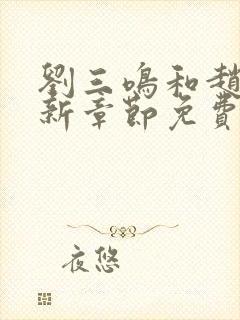 劉三鳴和趙
新章節免費
夜悠